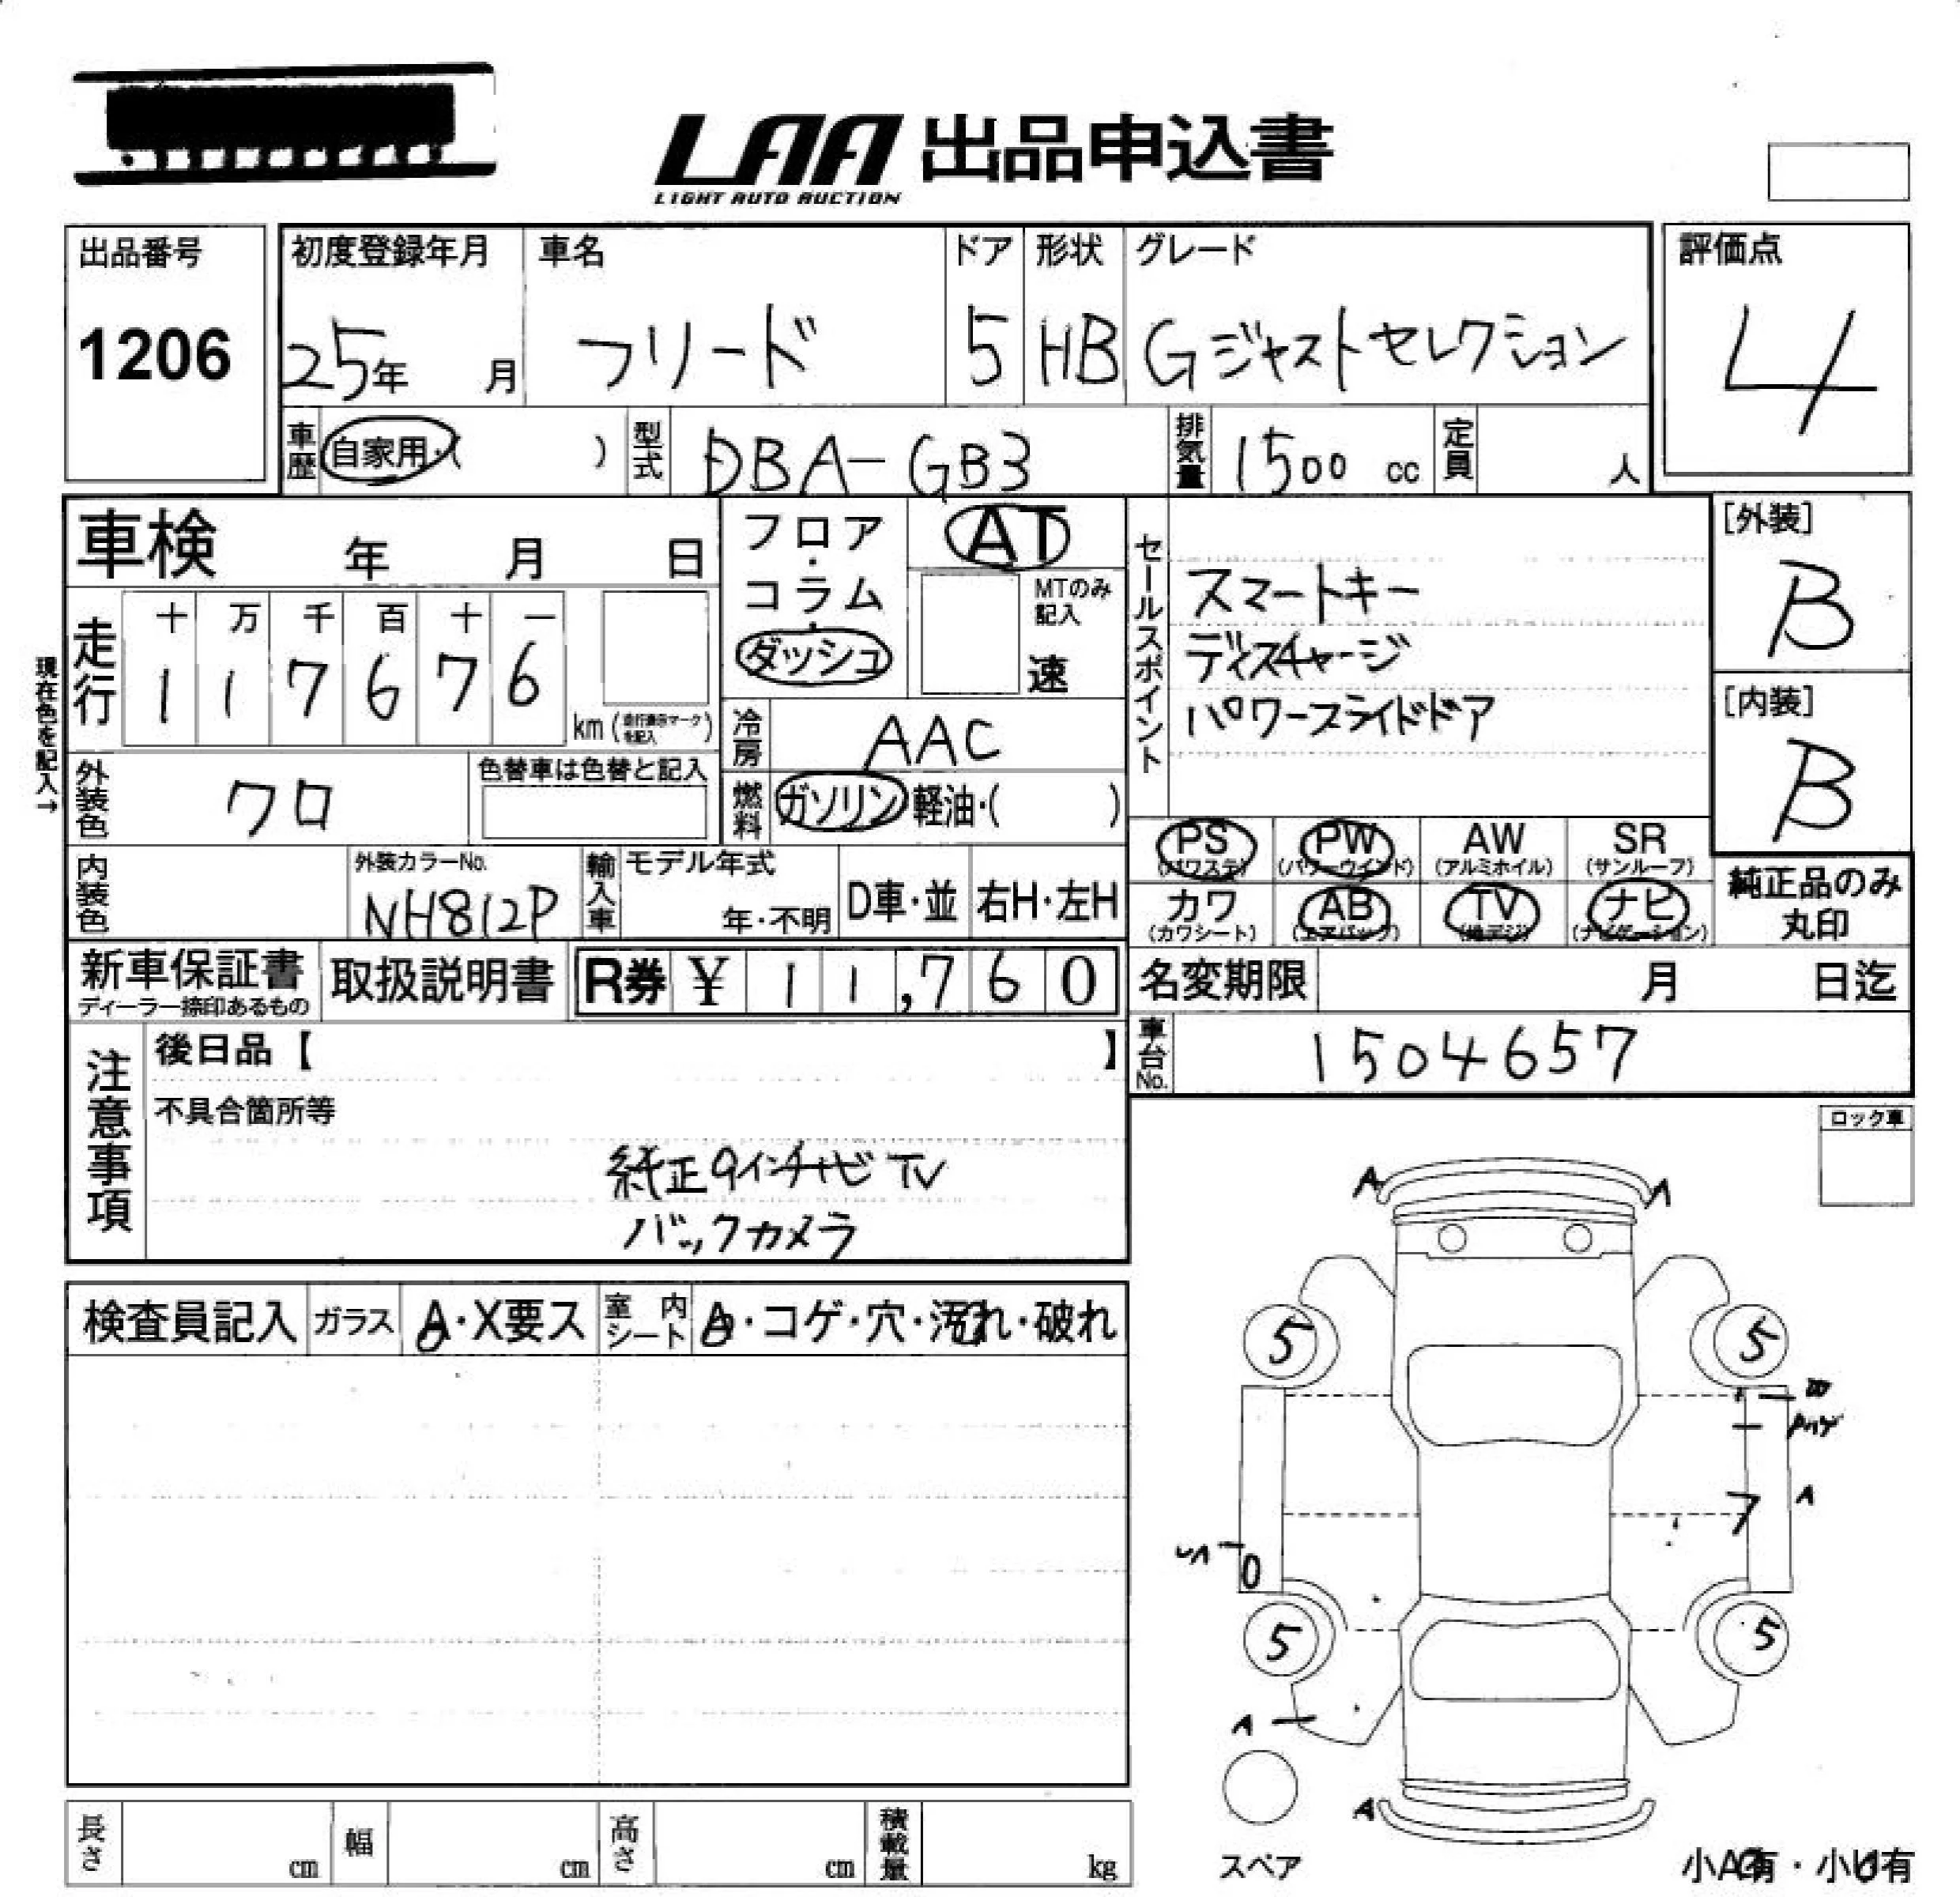 LAA 出品申込書
LIGHT AUTO AUCTION
出品番号
1206
初度登録年月
25年 月
車名
フリード
ドア
5
形状
HB
グレード
Gジャストセレクション
評価点
4
車歴
自家用・( )
型式
DBA-GB3
排気量
1500 cc
定員
人
車検 年 月 日
フロア・コラム・ダッシュ
AT
MTのみ記入
速
セールスポイント
スマートキー
ディスチャージ
パワースライドドア
[外装]
B
[内装]
B
現在色を記入→
走行
十 万 千 百 十 一
1 1 7 6 7 6
km (走行表示マークを記入)
冷房
AAC
外装色
クロ
色替車は色替と記入
燃料
ガソリン・軽油・( )
PS AW SR PW
(パワステ) (パワーウインド) (アルミホイル) (サンルーフ)
カワ AB TV ナビ
(カワシート) (エアバック) (地デジ) (ナビゲーション)
純正品のみ
丸印
内装色
外装カラーNo.
NH812P
輸入車
モデル年式
年・不明
D車・並
右H・左H
新車保証書
ディーラー捺印あるもの
取扱説明書
R券 ¥ 11,760
名変期限 月 日迄
車台No.
1504657
注意事項
後日品【 】
不具合箇所等
純正9インチナビ TV
バックカメラ
ロック車
検査員記入
ガラス
A・X要ス
室内シート
・コゲ・穴・汚れ・破れ
A A
5 5
A
7
5 5
A
A
スペア
長さ cm
幅 cm
高さ cm
積載量 kg
小A有・小U有